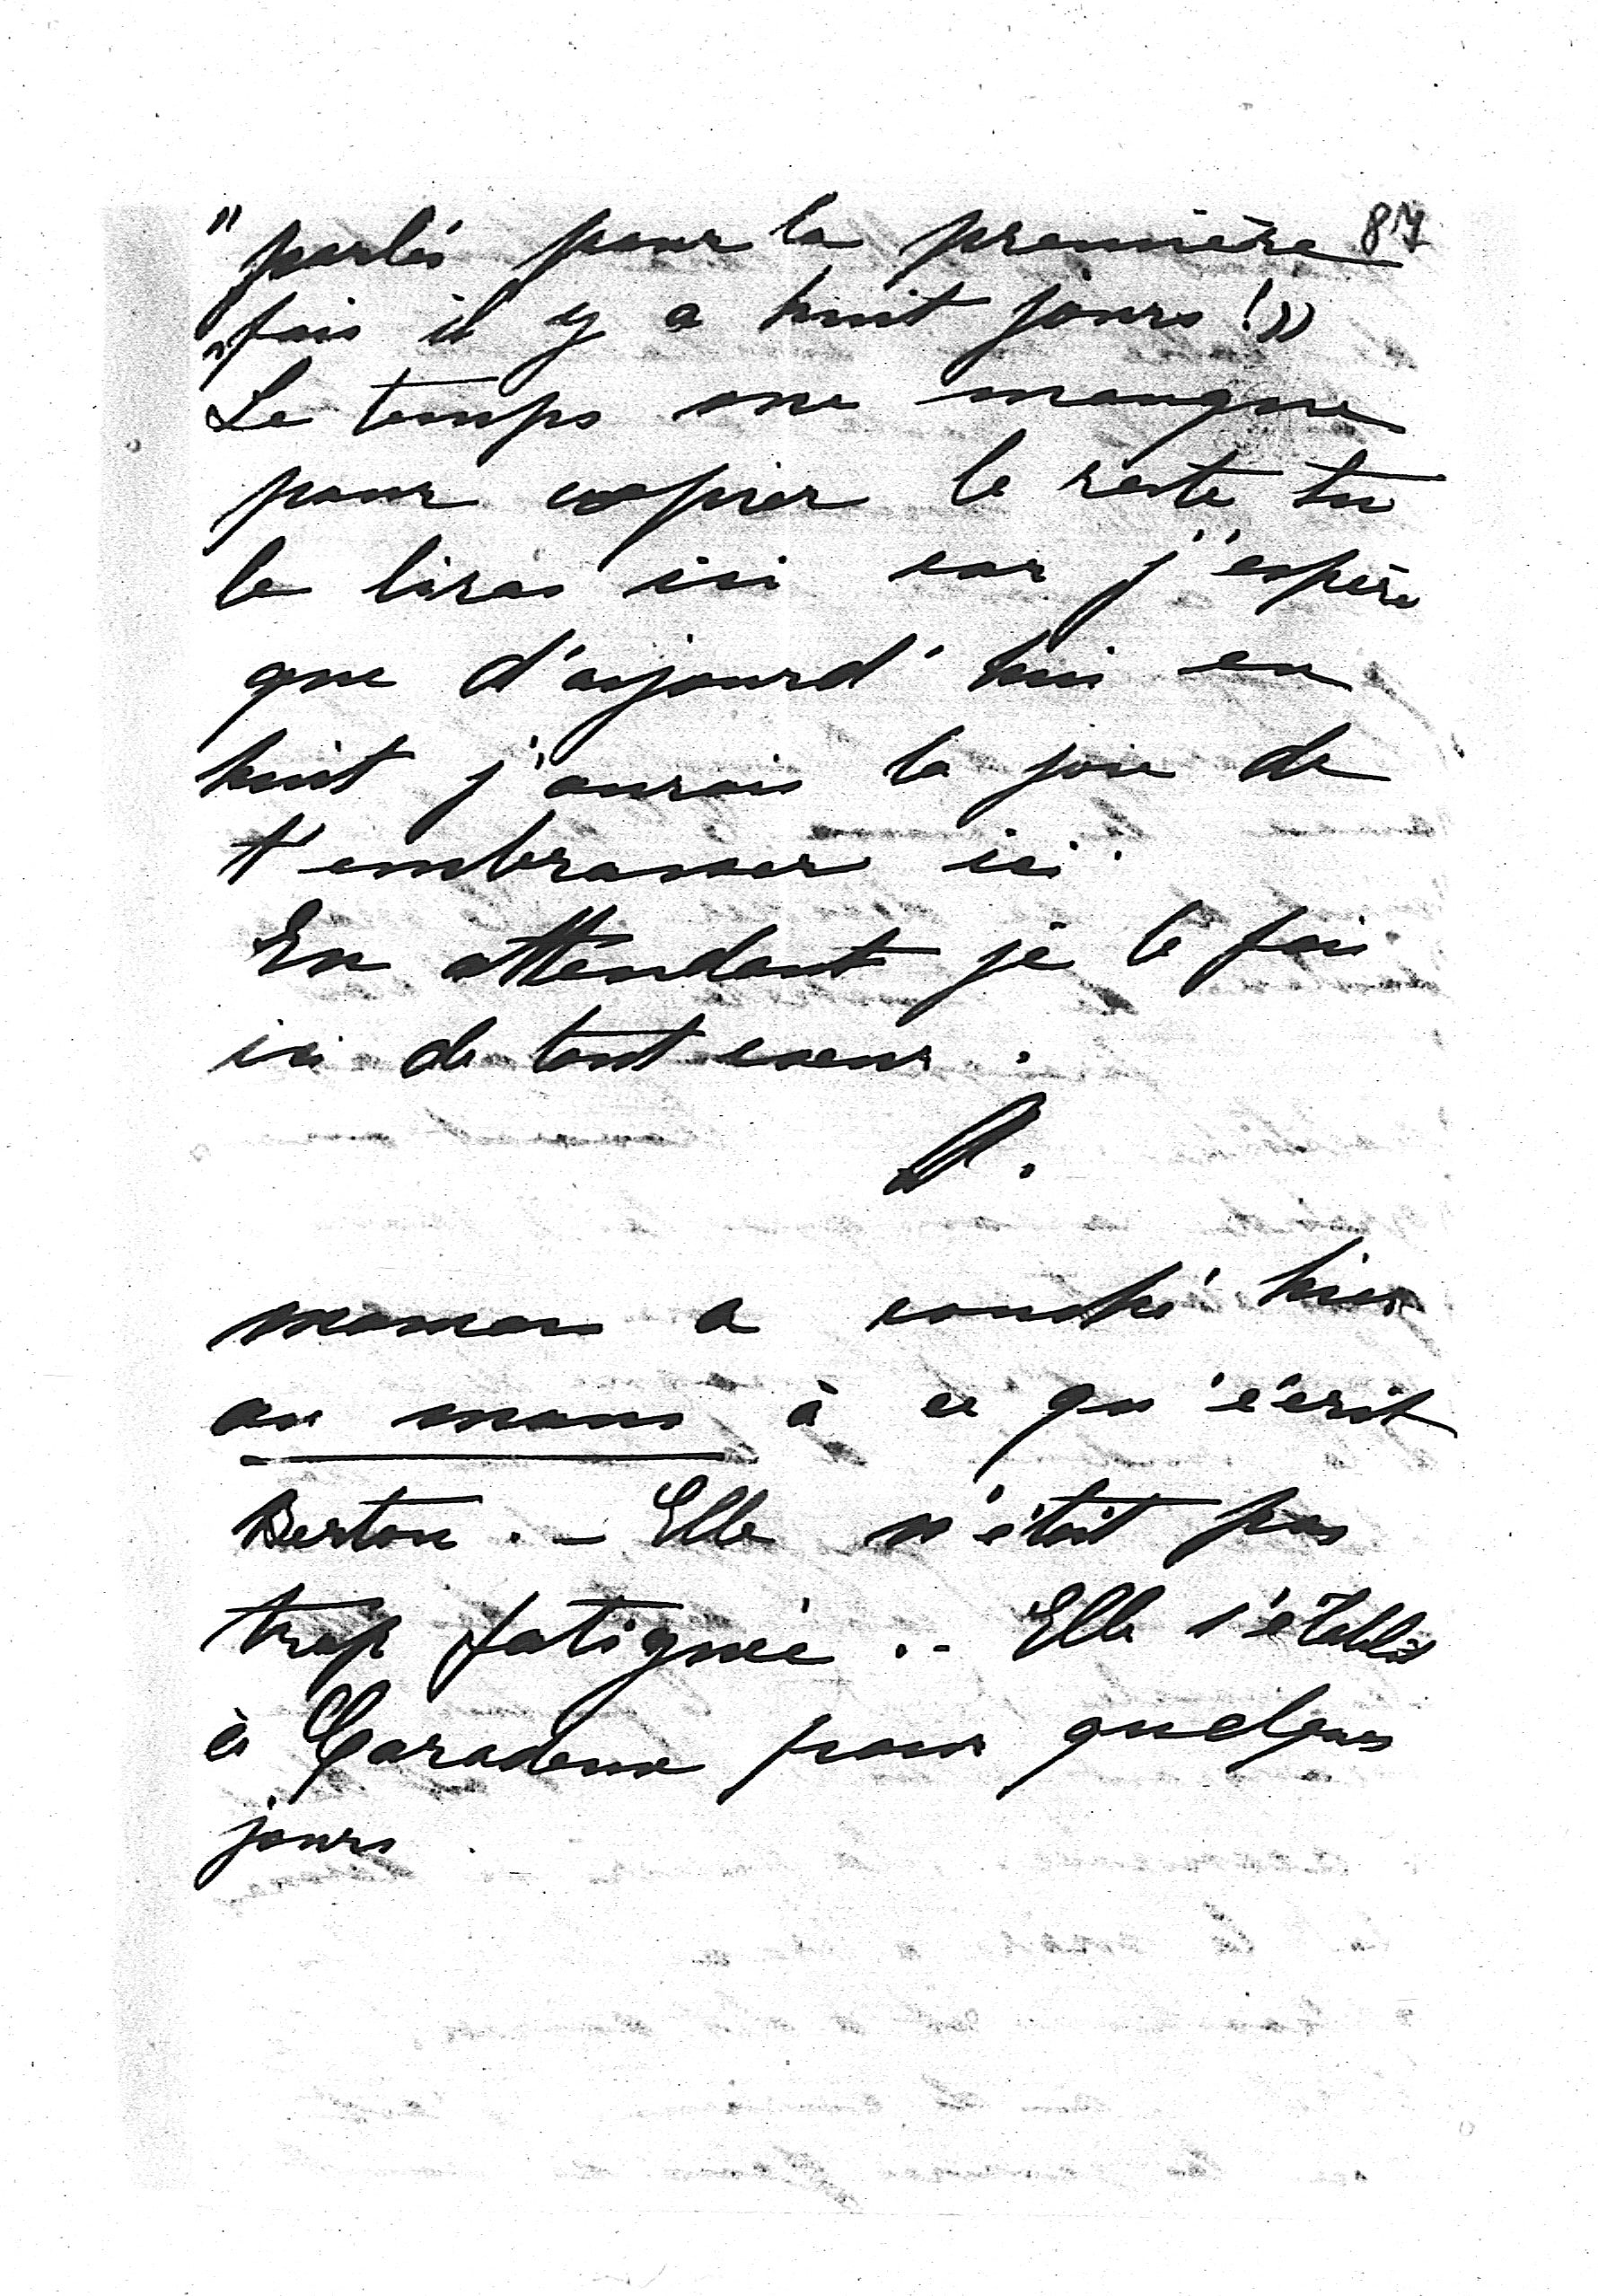 87
"parlés pour la première
"fois il y a huit jours !»
Le temps me manque
pour copier le reste tu
le liras ici car j'espère
que d'aujourd'hui en
huit j'aurais la joie de
t'embrasser ici.
En attendant je le fais
ici de tout coeur.
maman a couché hier
au mans à ce qu'écrit
Berton. _ Elle n'était pas
trop fatiguée. - Elle s'établit
à Caradeux pour quelques
jours.